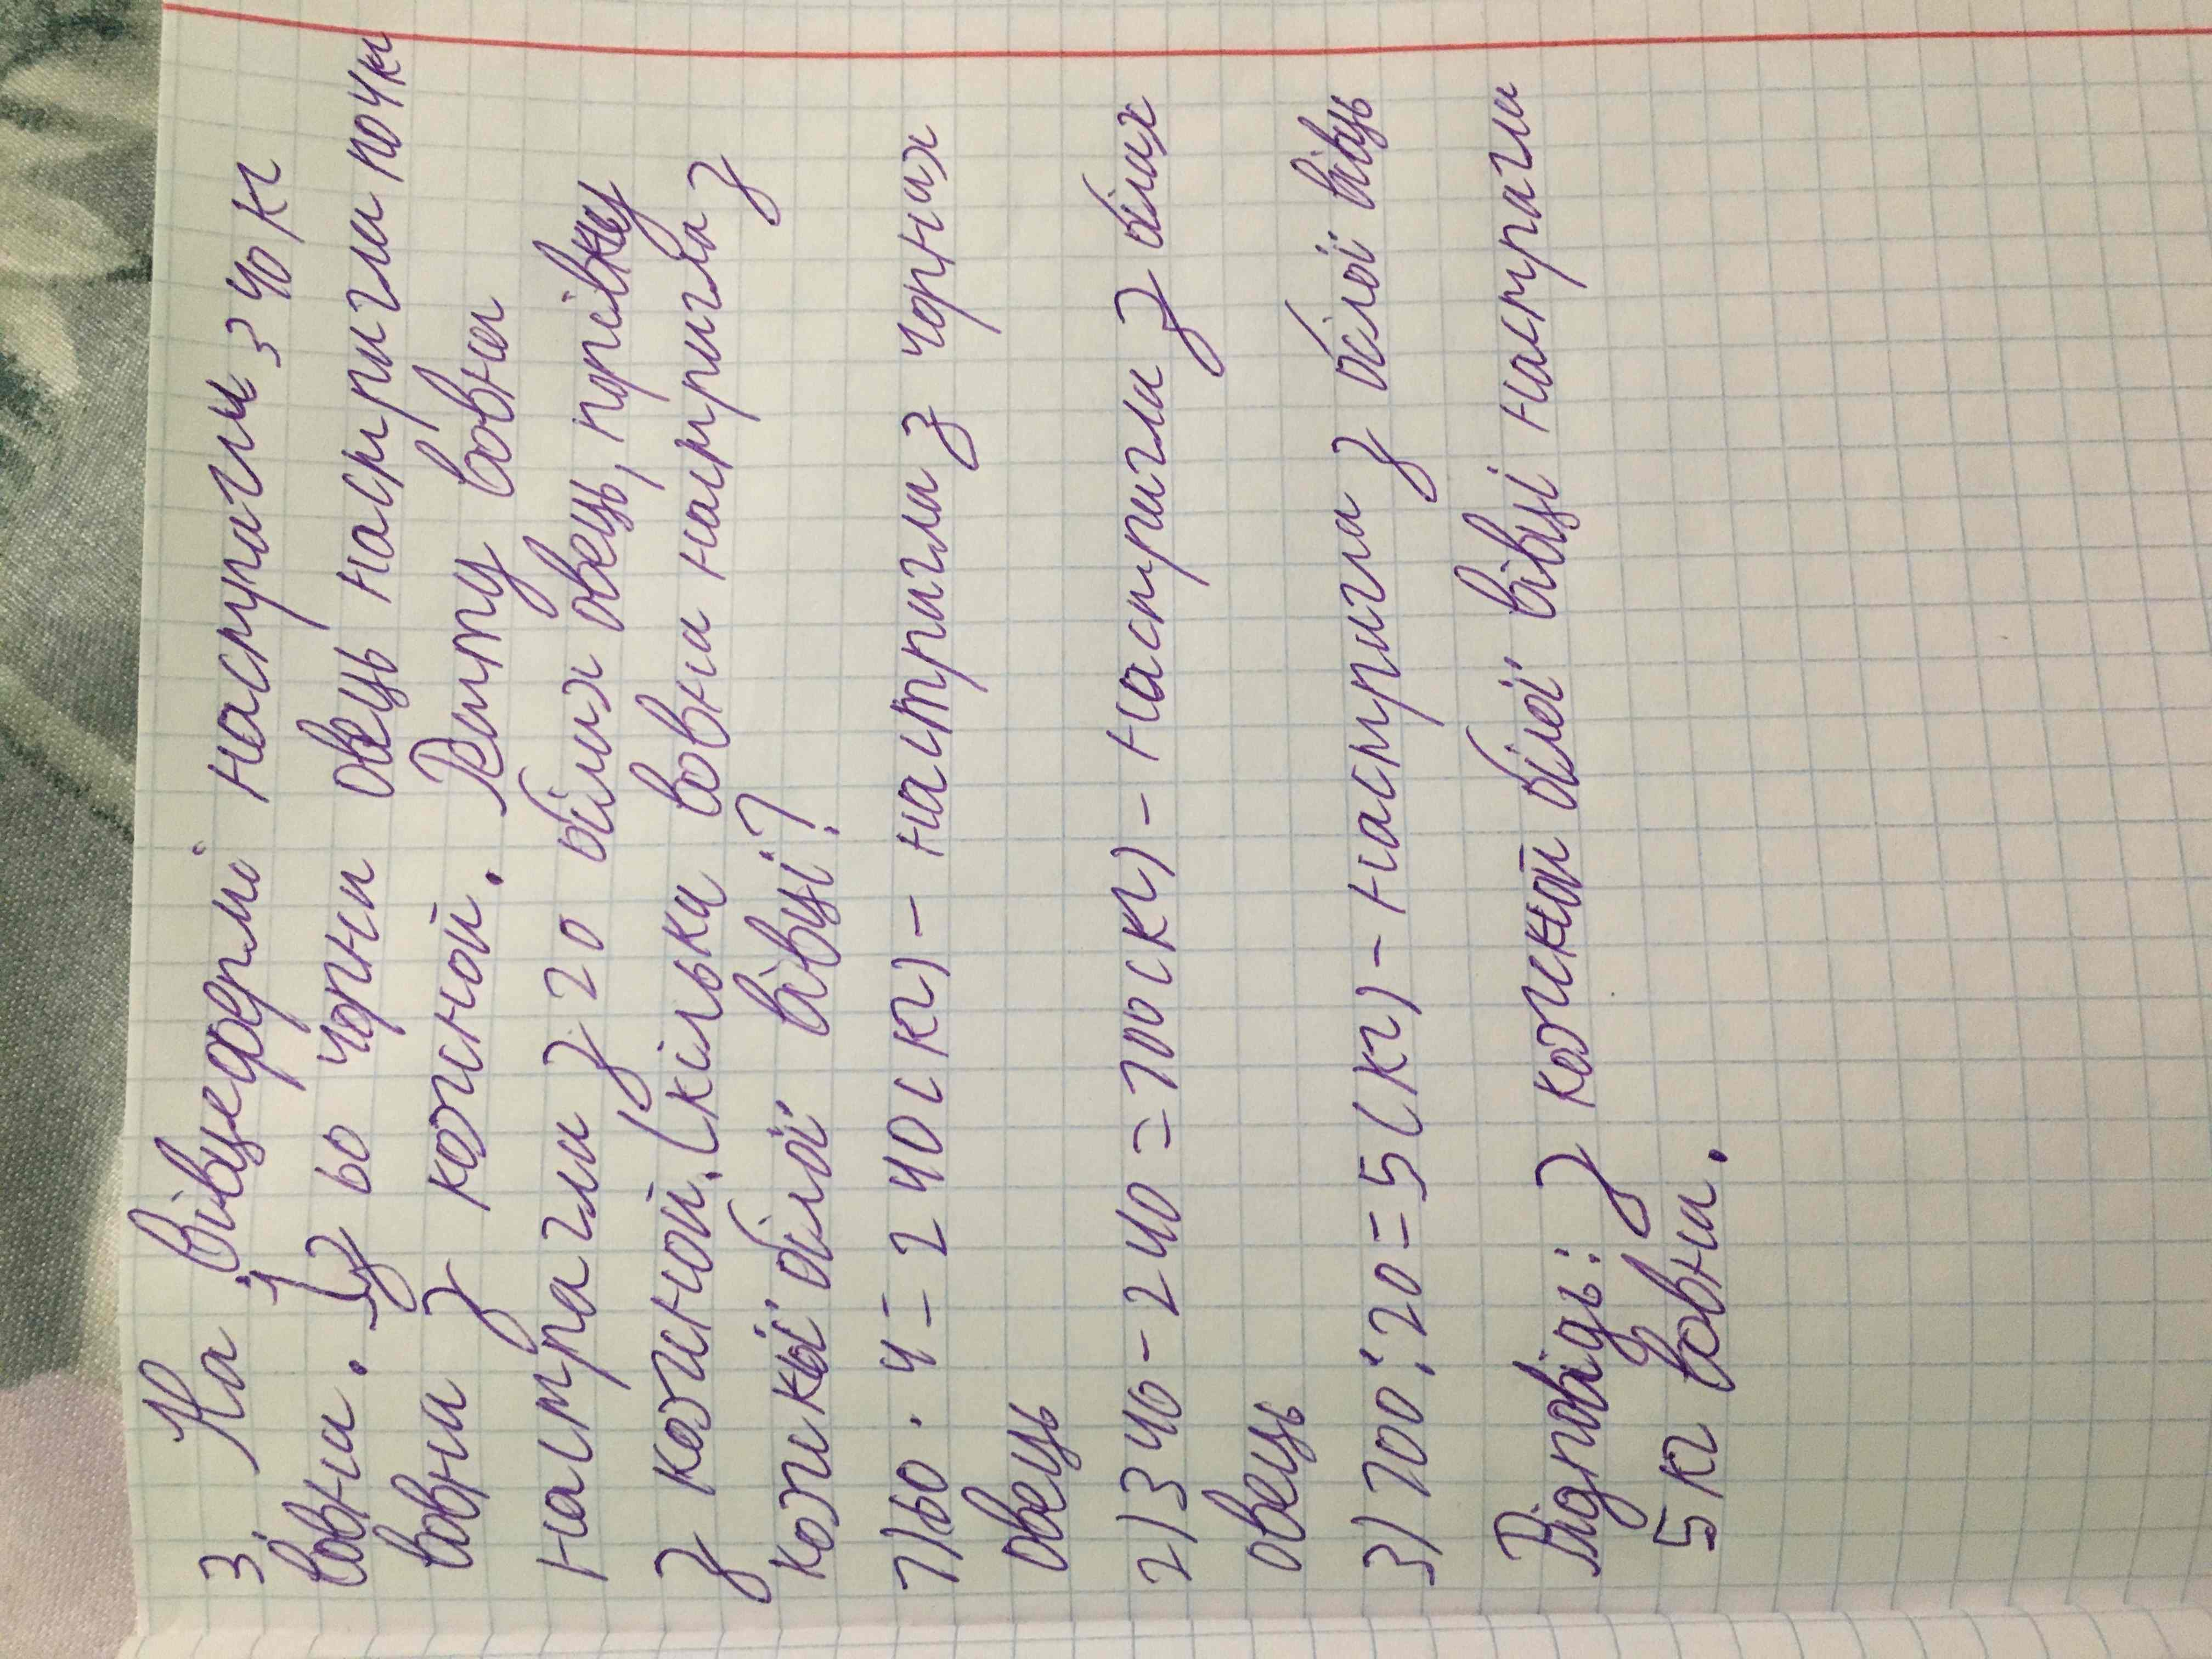 3. На вівцефермі настригли 340 кг
вовни. Із 60 чорни овець настригли по 4 кг
вовни з кожной. Решту вовни
настрагли з 20 білих овець, порівну
з кожной. Скілька вовни настригла з
кожикої білої вівці?
1) 60 · 4 = 240 (кг) - настригли з чорних
овець
2) 340 - 240 = 100 (кг) - настригли з білих
овець
3) 100 : 20 = 5 (кг) - настригла з білої вівць
Відповідь: з кожной білої вівці настрагли
5 кг вовни.